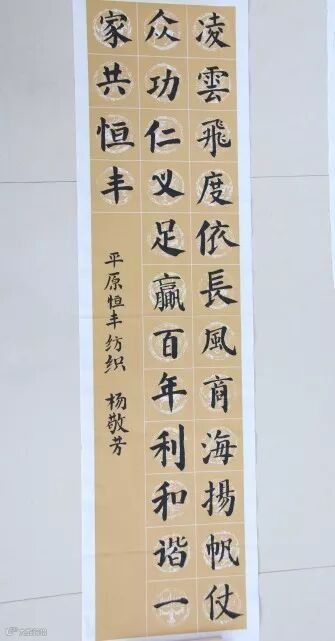 凌雲飛度依長風商海揚帆仗
众功仁义足贏百年利和谐一
家共恒丰
平原恒丰纺织 杨敬芳